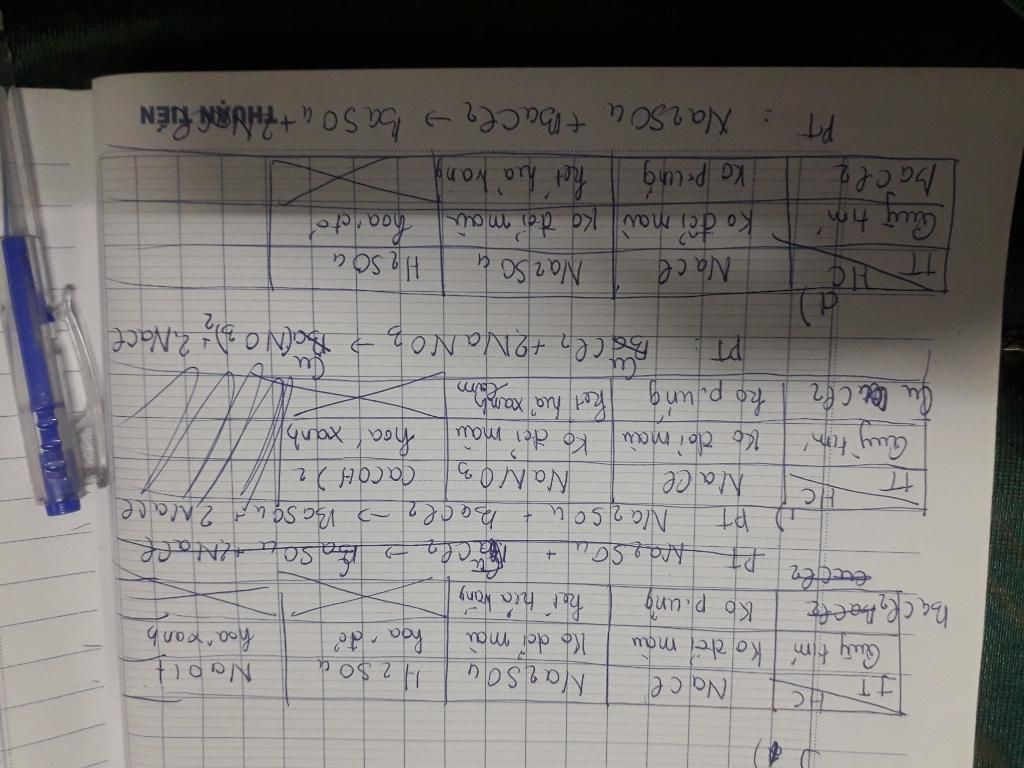 TT HC | NaCl | Na2SO4 | H2SO4 | NaOH
Quỳ tím | Ko đổi màu | Ko đổi màu | hoá đỏ | hoá xanh
BaCl2 | Ko p.ứng | kết tủa trắng
PT Na2SO4 + BaCl2 → BaSO4 + 2NaCl
PT Na2SO4 + BaCl2 → BaSO4 + 2NaCl
TT HC | NaCl | NaNO3 | Ca(OH)2
Quỳ tím | Ko đổi màu | Ko đổi màu | hoá xanh
CuCl2 | ko p.ứng | kết tủa xanh lam
PT: CuCl2 + 2NaNO3 → Cu(NO3)2 + 2NaCl
d)
TT HC | NaCl | Na2SO4 | H2SO4
Quỳ tím | Ko đổi màu | Ko đổi màu | hoá đỏ
BaCl2 | Ko p.ứng
PT: Na2SO4 + BaCl2 → BaSO4 + 2NaCl
THUẬN TIẾN